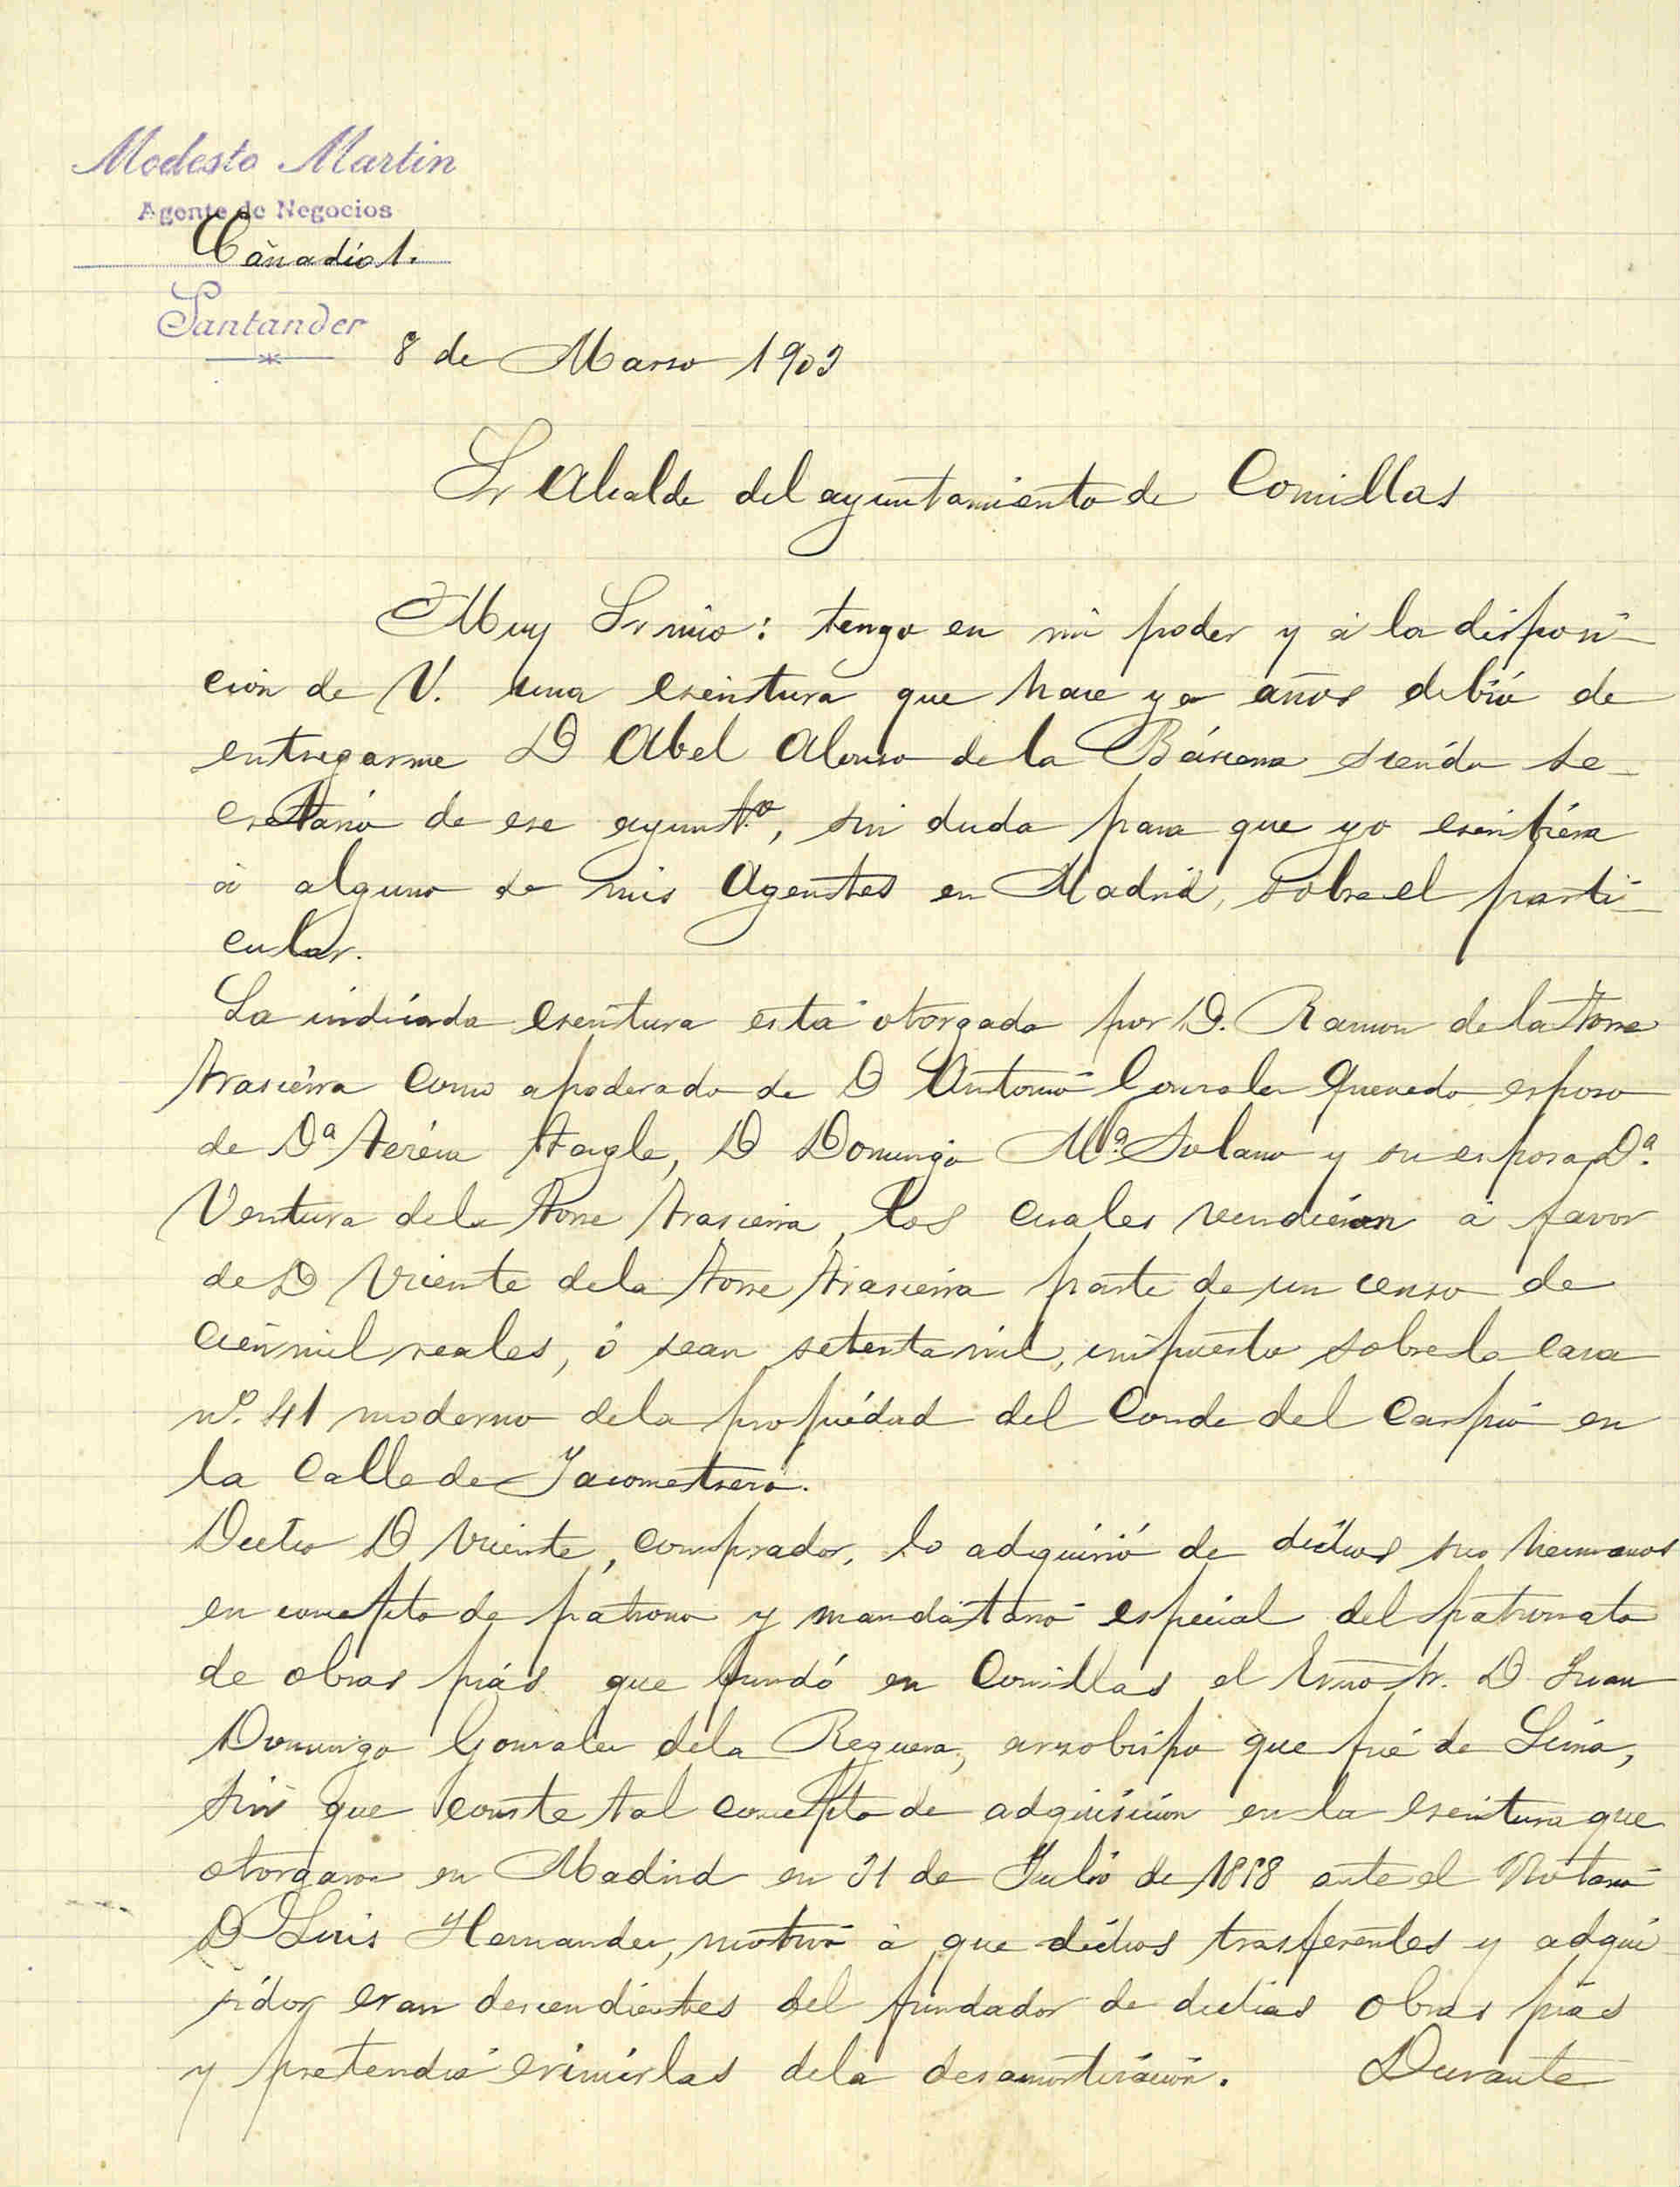 Modesto Martin
Agente de Negocios
Cañadio 1.
Santander
8 de Marzo 1903
Sr Alcalde del ayuntamiento de Comillas
Muy Sr mio: tengo en mi poder y á la disposi-
cion de V. una escritura que hace ya años debió de
entregarme D Abel Alonso de la Bárcena siendo se-
cretario de ese ayunt.º, sin duda para que yo escribiera
á alguno de mis Agentes en Madrid, sobre el parti-
cular.
La indicada escritura está otorgada por D. Ramon de la Torre
Trasierra como apoderado de D Antonio Gonzalez Quevedo esposo
de Dª Teresa Tagle, D Domingo Mª Solano y su esposa Dª.
Ventura de la Torre Trasierra, los cuales vendieron á favor
de D Vicente de la Torre Trasierra parte de un censo de
cien mil reales, ó sean setenta mil, impuesto sobre la casa
nº. 41 moderno de la propiedad del Conde del Carpio en
la Calle de Jacometrezo.
Dicho D Vicente, comprador, lo adquirió de dichos sus hermanos
en concepto de patrono y mandatario especial del patronato
de obras pias que fundó en Comillas el Excmo Sr. D Juan
Domingo Gonzalez de la Reguera, arzobispo que fué de Lima,
sin que conste tal concepto de adquisicion en la escritura que
otorgaron en Madrid en 31 de Julio de 1818 ante el Notario
D Luis Hernandez, motivo á que dichos trasferentes y adqui
ridor eran descendientes del fundador de dichas obras pias
y pretendió eximirlas de la desamortizacion. Durante